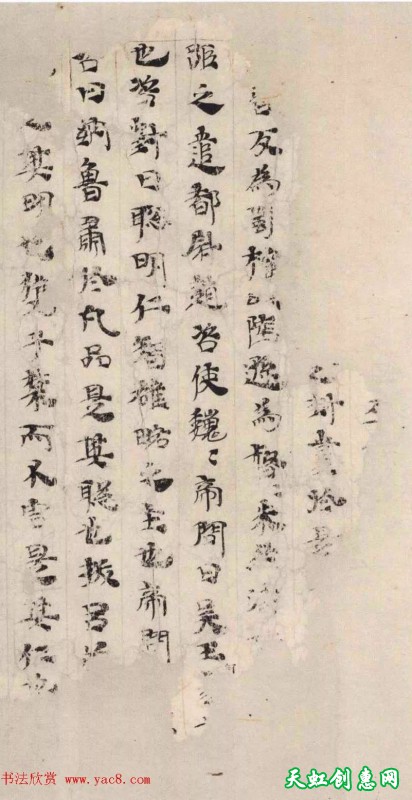 反為蜀權以陸遜為督〻朱然
距之遣都尉趙咨使魏〻帝問曰吳王
也咨對曰聰明仁智雄略之主也帝問
咨曰納魯肅於凡品是其聰也拔呂
是其明也獲于禁而不害是其仁也
书法欣赏 www.yac8.com
天虹创惠网